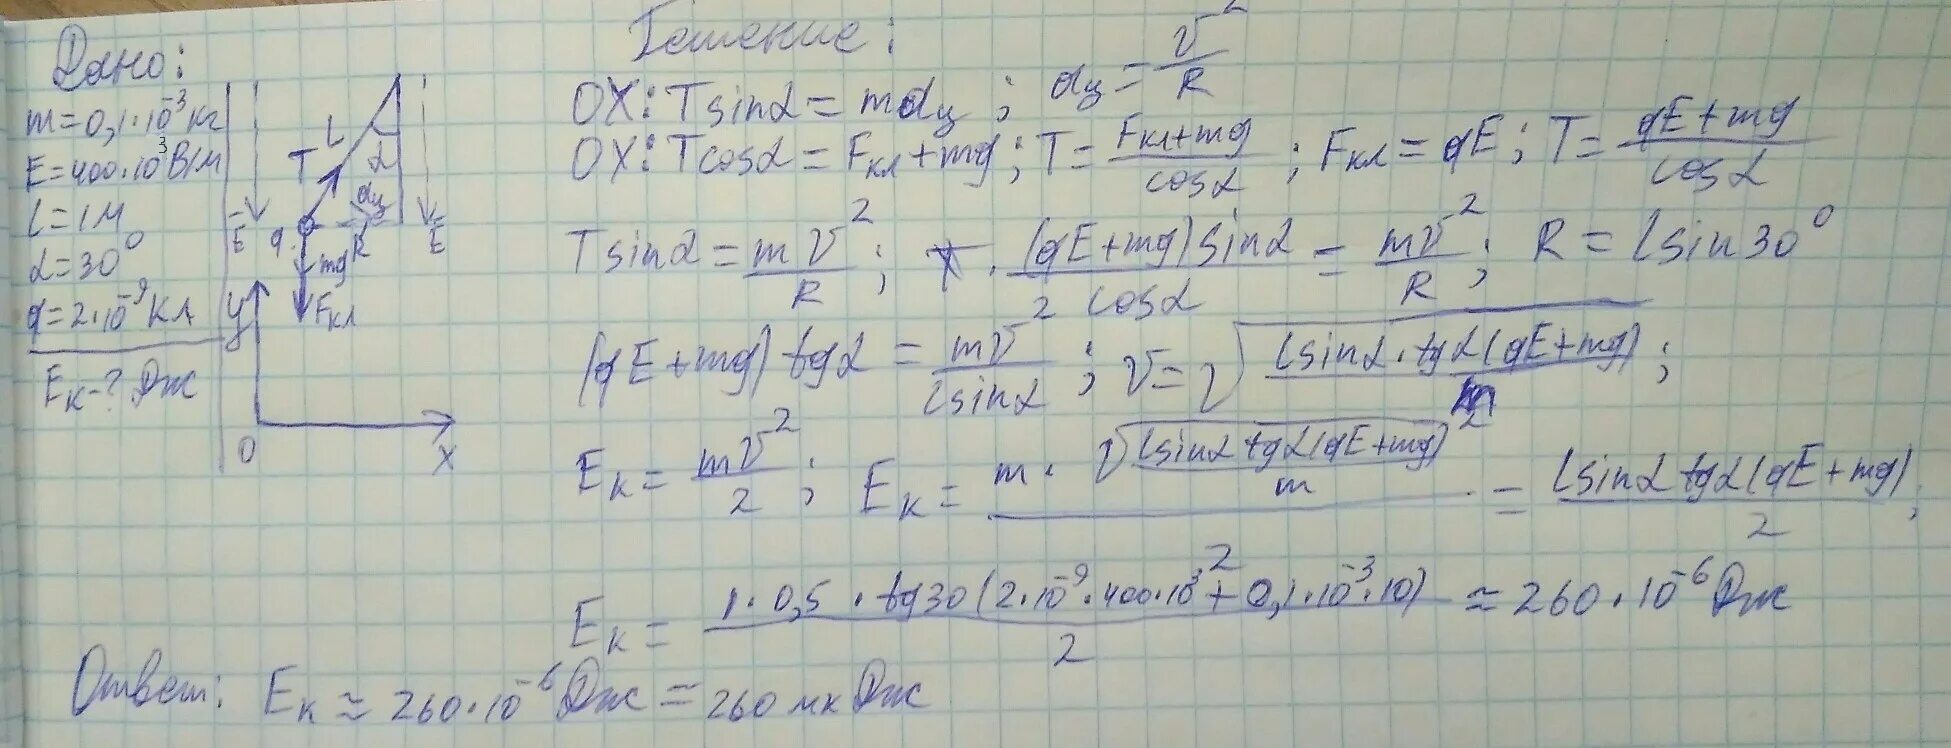 Дано:
m=0,1·10⁻³кг
E=400·10³В/м
l=1м
α=30°
q=2·10⁻⁹Кл
Eк-? Дж
L
T
α
aц
R
E
E
q
mg
Fкл
y
O
x
Решение:
OX: T sinα = maц; aц = v²/R
OX: T cosα = Fкл + mg; T = (Fкл + mg)/cosα; Fкл = qE; T = (qE + mg)/cosα
T sinα = mv²/R; (qE + mg) sinα/cosα = mv²/R; R = l sin30°
(qE + mg) tgα = mv²/(l sinα); v = √(l sinα · tgα (qE + mg)/m);
Eк = mv²/2; Eк = m·√(l sinα tgα (qE + mg)/m)²/2 = l sinα tgα (qE + mg)/2;
Eк = 1·0,5·tg30(2·10⁻⁹·400·10³ + 0,1·10⁻³·10)/2 ≈ 260·10⁻⁶ Дж
Ответ: Eк ≈ 260·10⁻⁶ Дж = 260 мкДж